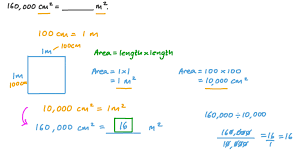 160,000 cm² = ______ m².
100 cm = 1 m
1m
100cm
Area = length × length
1m
100cm
Area = 1 × 1
= 1 m²
Area = 100 × 100
= 10,000 cm²
10,000 cm² = 1m²
160,000 cm² = 16 m²
160,000 ÷ 10,000
160,000/10,000 = 16/1 = 16